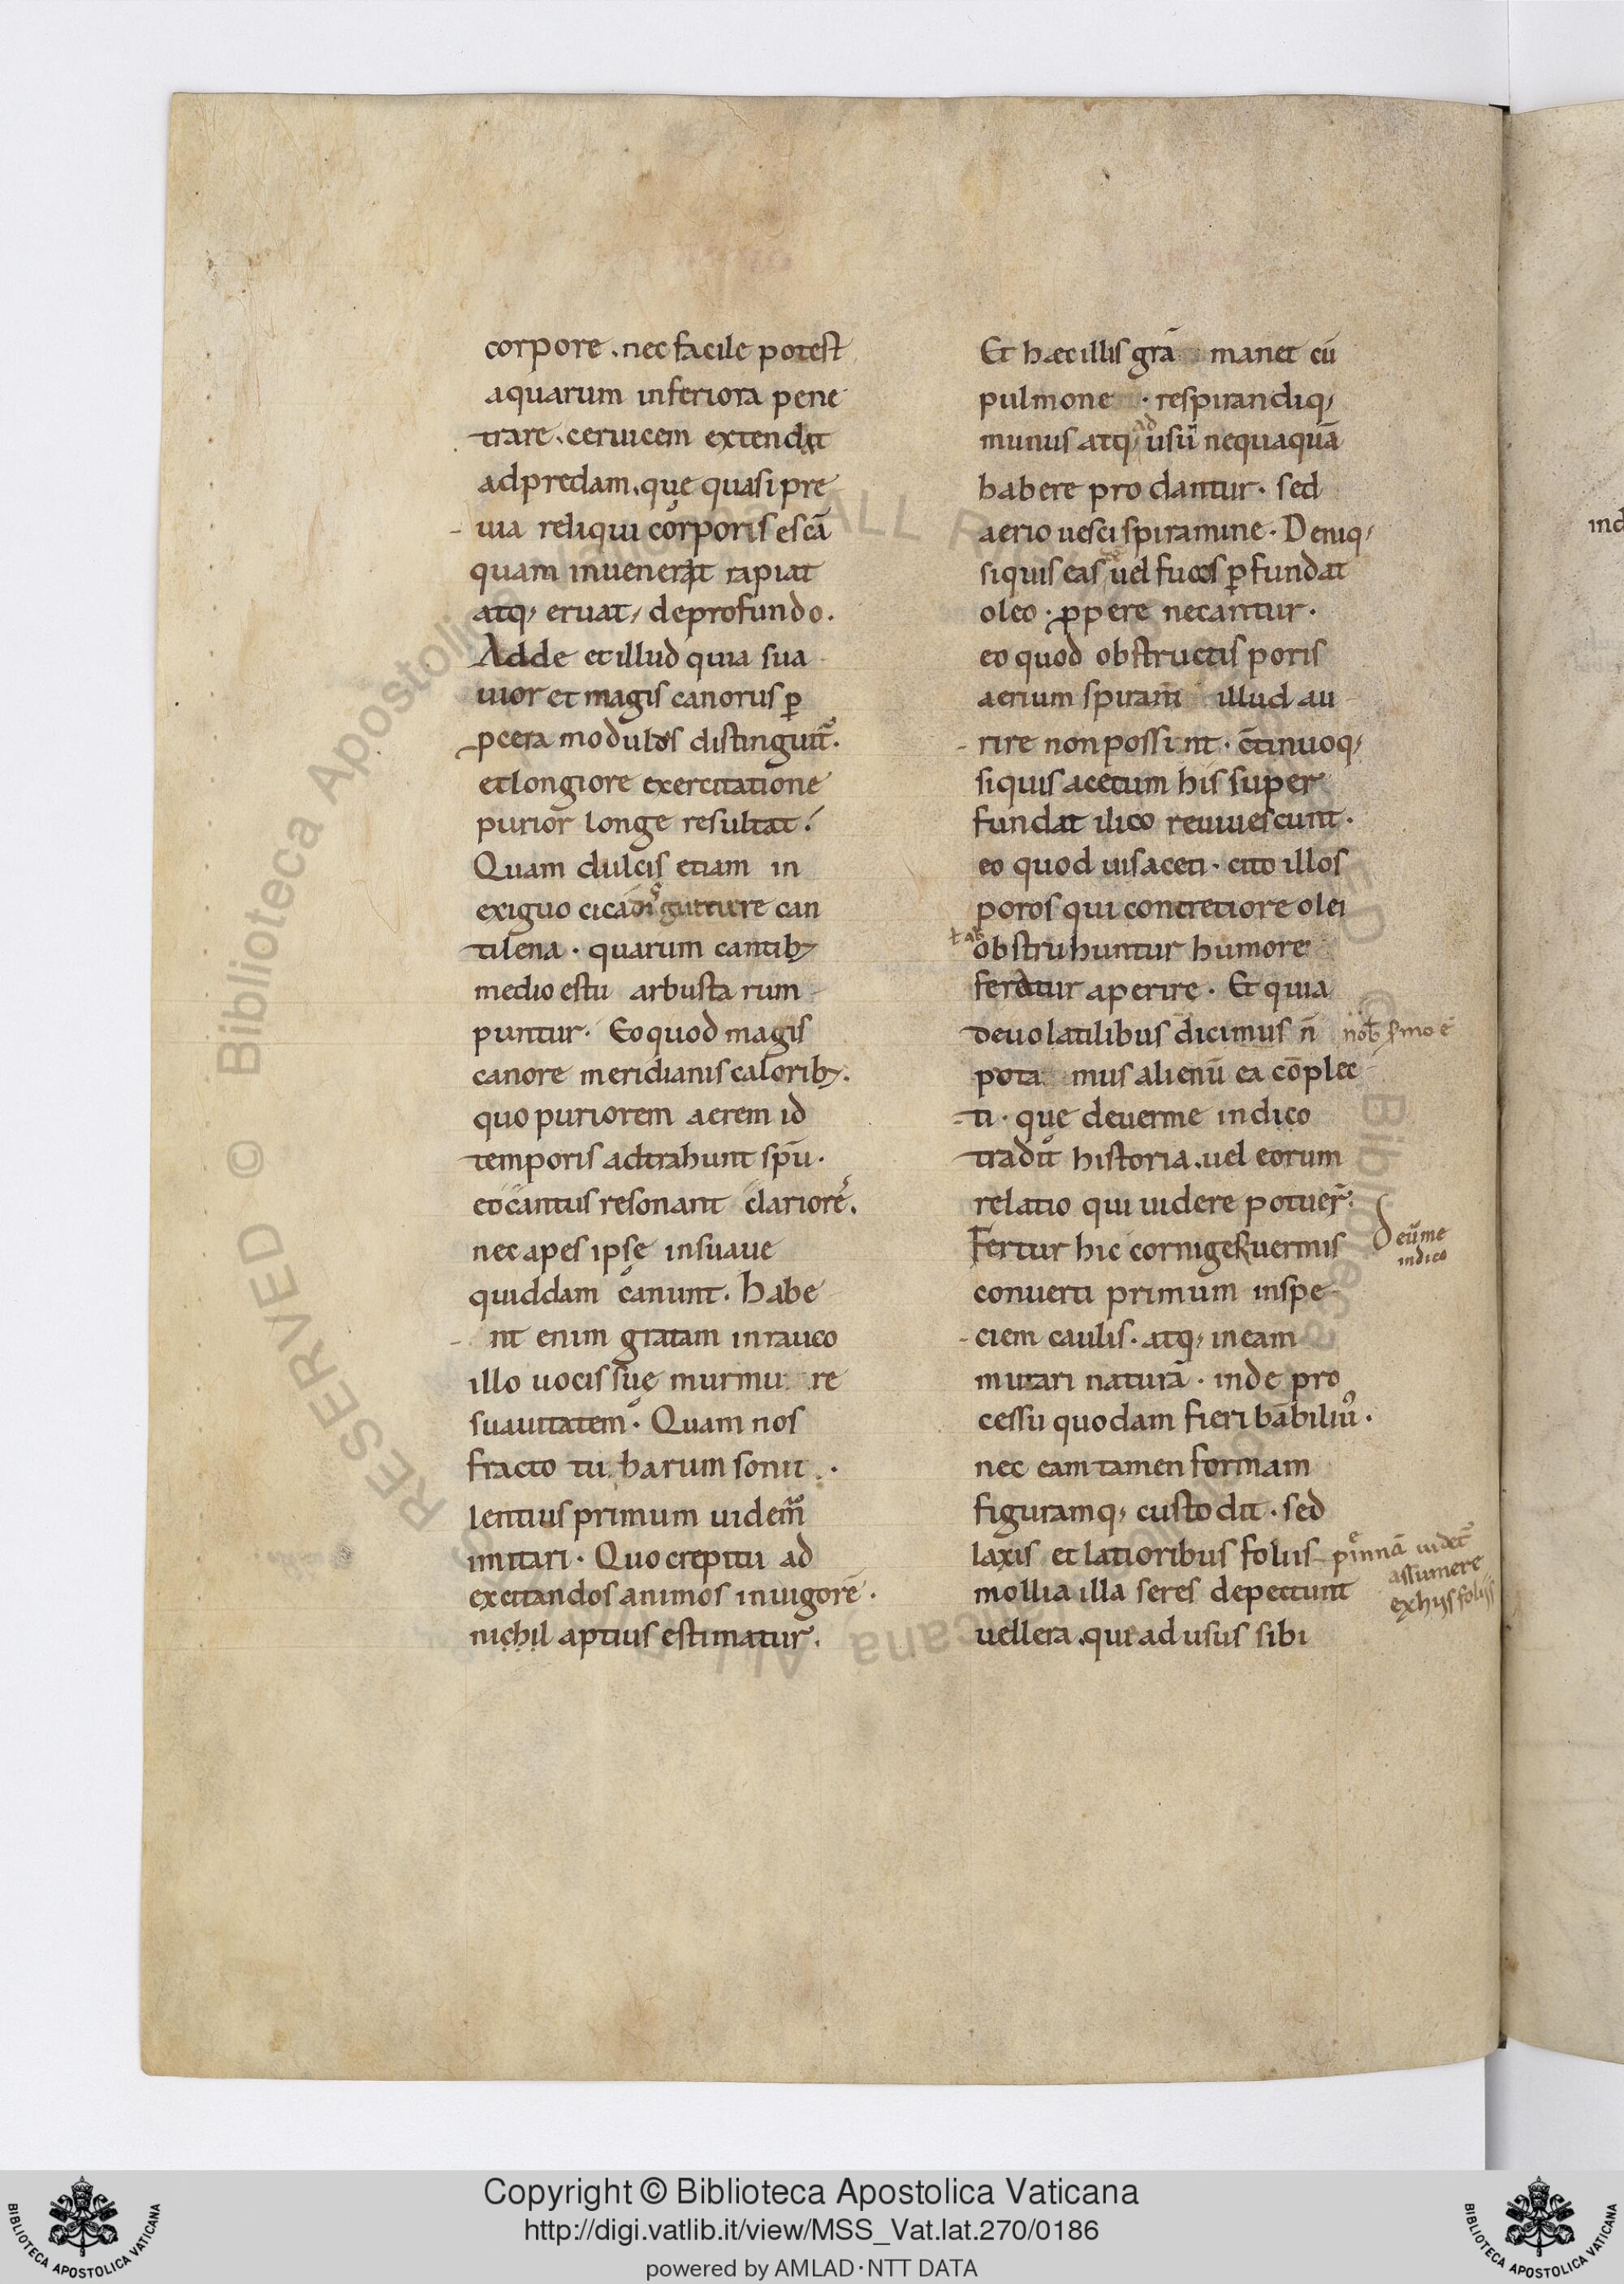 corpore . nec facile potest
aquarum inferiora pene
trare . ceruicem extendit
ad predam . que quasi pre
uia reliqui corporis escā
quam inuenerit rapiat
atq; eruat / de profundo .
Adde et illud quia sua
uior et magis canorus ꝑ
pcera modulos distinguit᷑ .
et longiore exercitatione
purior longe resultat .
Quam dulcis etiam in
exiguo cicadis gutture can
tilena . quarum cantib;
medio estu arbusta rum
puntur . Eo quod magis
canore meridianis calorib; .
quo puriorem aerem id
temporis adtrahunt spū .
eo cantus resonant clariorē .
nec apes ipse insuaue
quiddam canunt . habe
nt enim gratam in rauco
illo uocis sue murmu re
suauitatem . Quam nos
fracto tu barum sonit .
lentius primum uidem᷑
imitari . Quo crepitu ad
excitandos animos in uigorē .
nichil aptius estimatur .
Et hæc illis grā manet cū
pulmone . respirandiq;
munus atq; ad usū nequaquā
habere prodantur . sed
aerio uesci spiramine . Deniq;
siquis eas uel fucos ꝑfundat
oleo . ꝓpere necantur .
eo quod obstructis poris
aerium spiram̄ illud au
rire non possi nt . c̄tinuoq;
siquis acetum his super
fundat ilico reuiuescunt .
eo quod uis aceti . cito illos
poros qui concretiore olei
ł ab
obstruhuntur humore
feratur aperire . Et quia
de uolatilibus dicimus n̄
nob̄ ꝑmo ē
pota mus alienū ea cōplec
ti . que de uerme indico
tradit historia . uel eorum
relatio qui uidere potuer̄ .
Fertur hic corniger uermis
De ūme
indico
conuerti primum in spe
ciem caulis . atq; in eam
mutari naturā . inde pro
cessu quodam fieri babiliu᷒ .
nec eam tamen formam
figuramq; custodit . sed
laxis et latioribus foliis
pinnā uidet᷑
assumere
ex hijs folijs
mollia illa seres depectunt
uellera . que ad usus sibi
ind
Copyright © Biblioteca Apostolica Vaticana
http://digi.vatlib.it/view/MSS_Vat.lat.270/0186
powered by AMLAD·NTT DATA
BIBLIOTECA APOSTOLICA VATICANA
BIBLIOTECA APOSTOLICA VATICANA